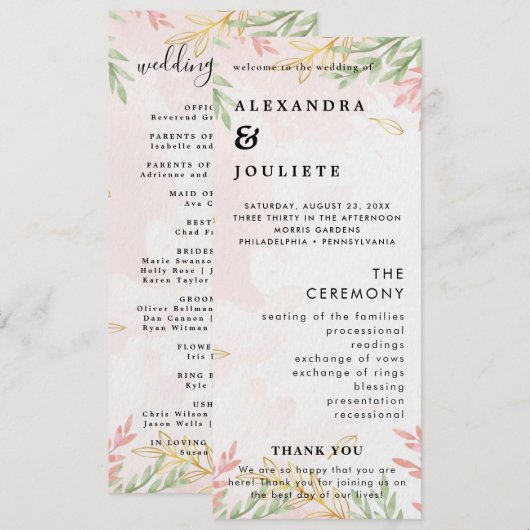 wedding
OFFIC
Reverend Gr
PARENTS OF
Isabelle and
PARENTS OF
Adrienne and
MAID OF
Ava C
BEST
Chad F
BRIDES
Marie Swanso
Holly Rose | J
Karen Taylor
GROOM
Oliver Bellman
Dan Cannon |
Ryan Witman
FLOWE
Iris
RING B
Kyle
USH
Chris Wilson
Jason Wells |
IN LOVING
Susan
welcome to the wedding of
ALEXANDRA
&
JOULIETE
SATURDAY, AUGUST 23, 20XX
THREE THIRTY IN THE AFTERNOON
MORRIS GARDENS
PHILADELPHIA • PENNSYLVANIA
THE
CEREMONY
seating of the families
processional
readings
exchange of vows
exchange of rings
blessing
presentation
recessional
THANK YOU
We are so happy that you are
here! Thank you for joining us on
the best day of our lives!